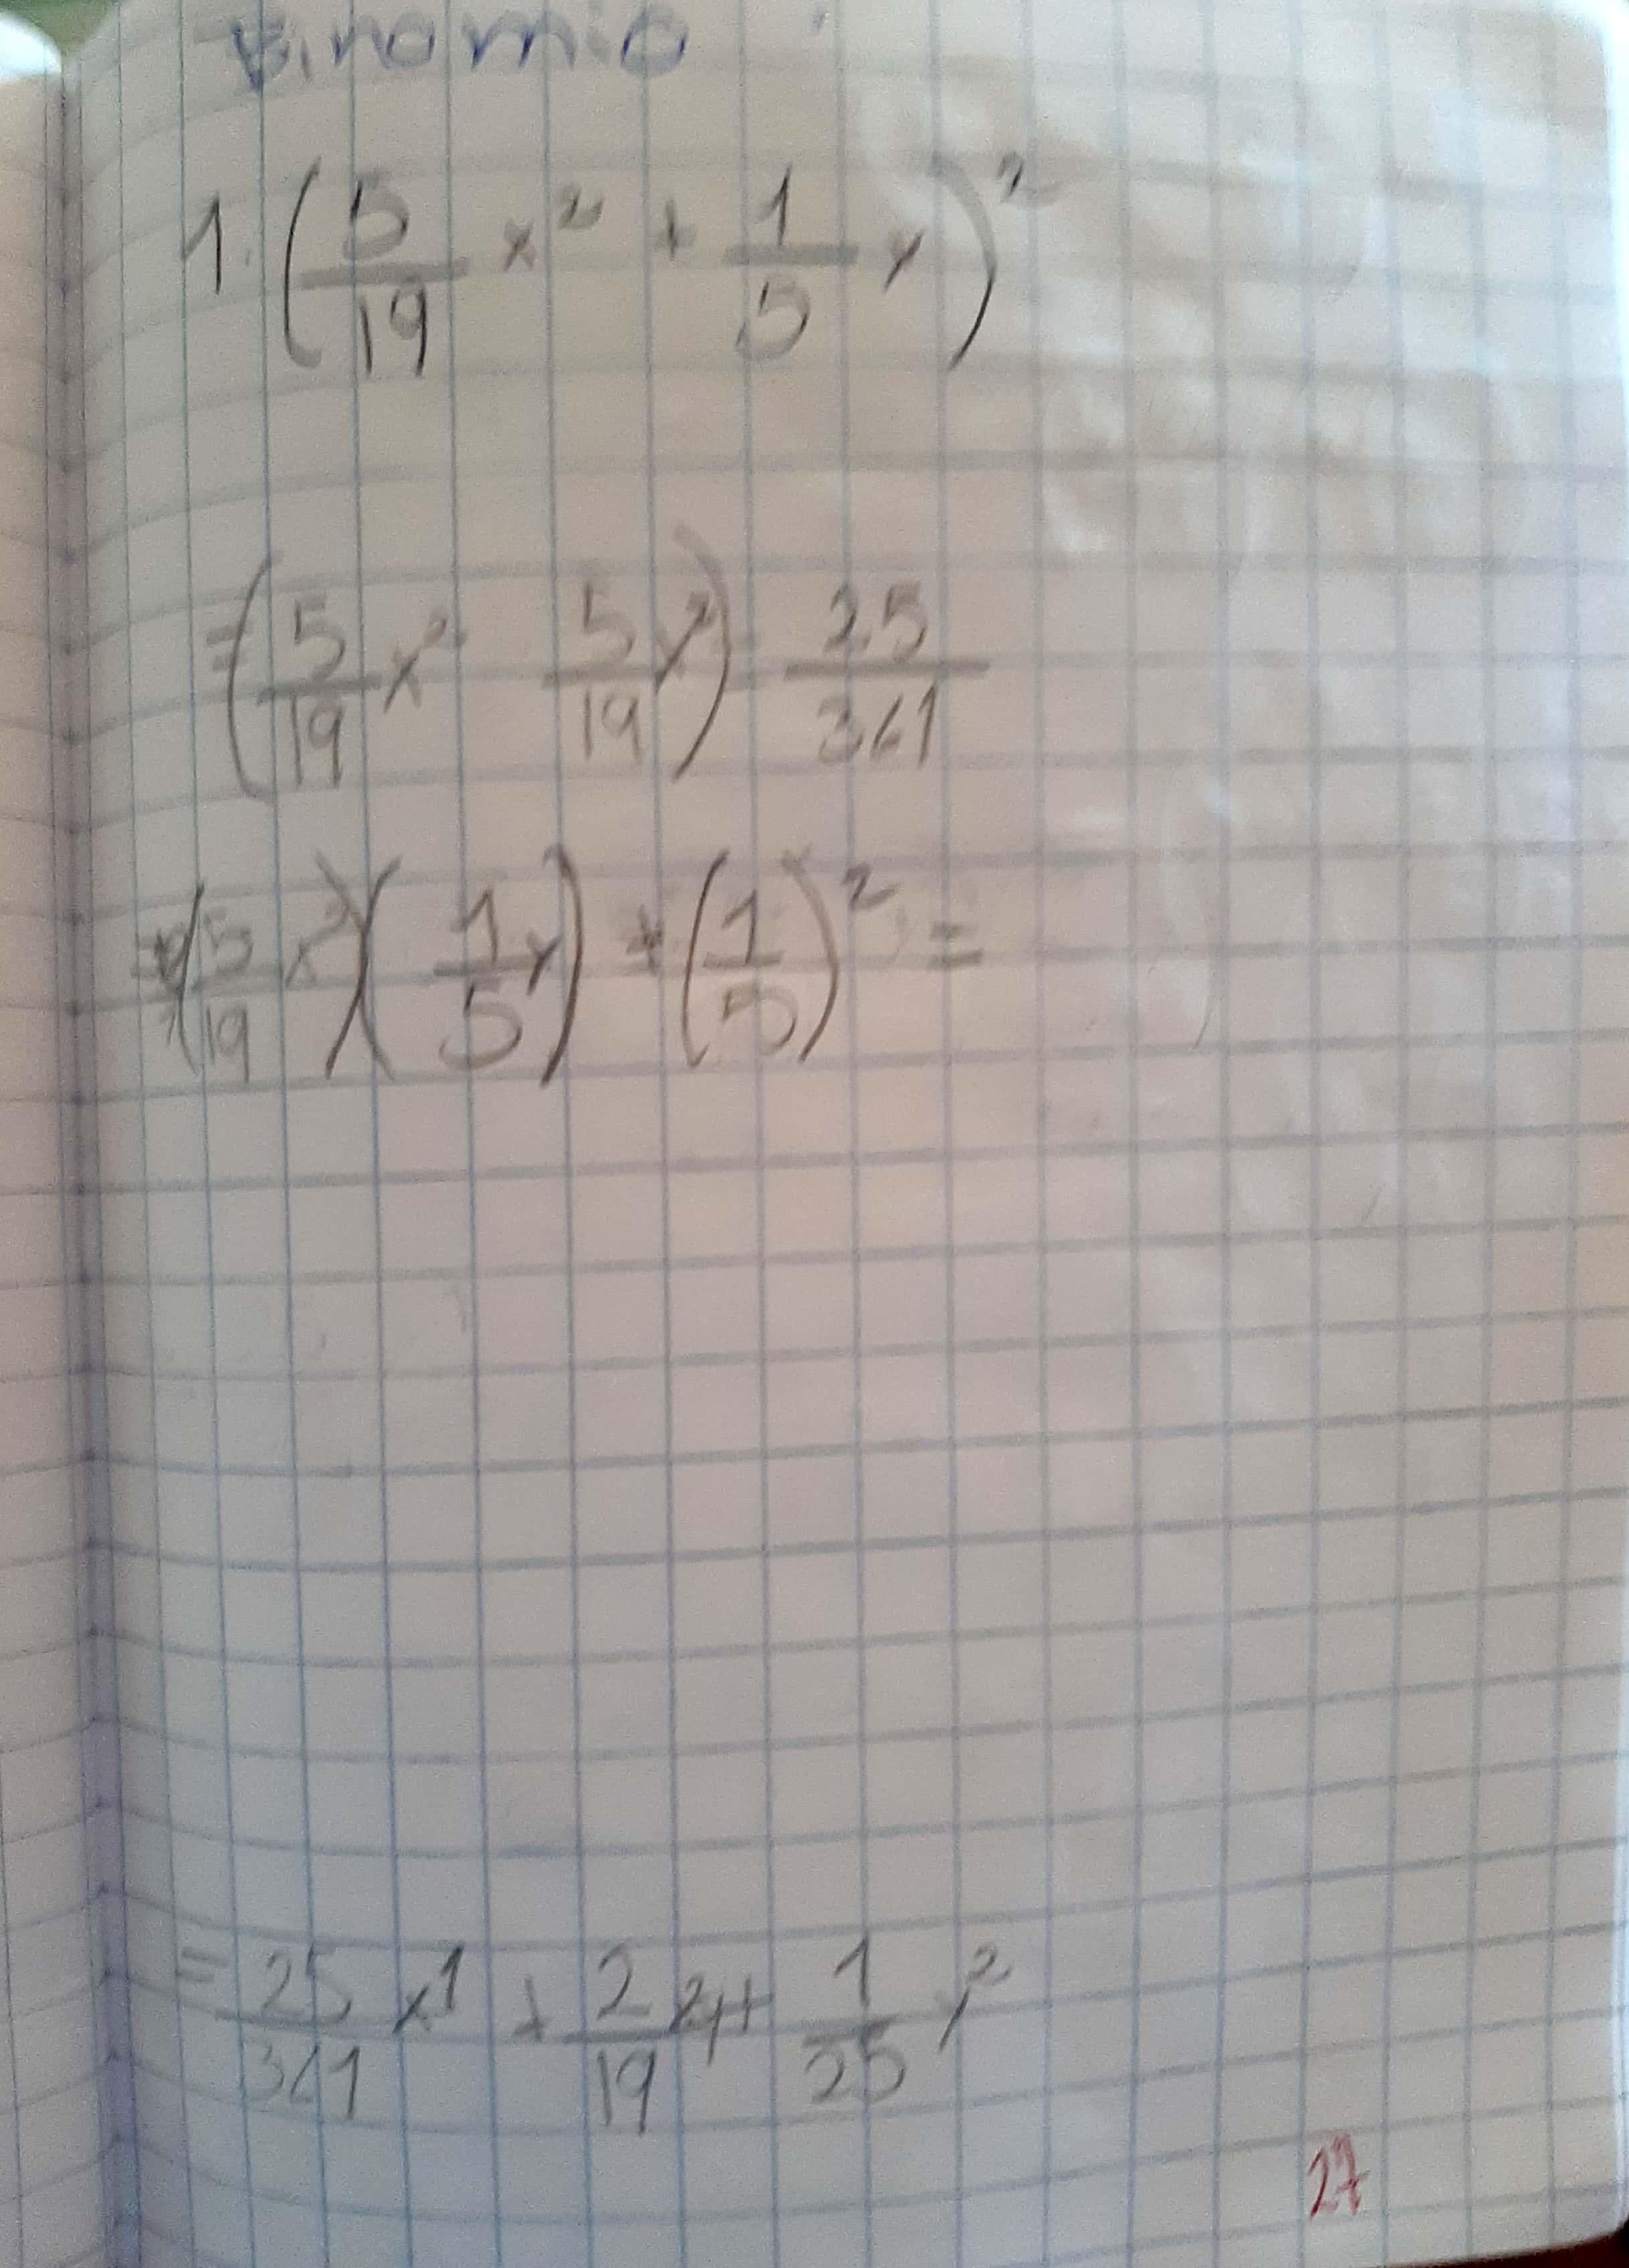 Binomio
1. (5/19 x² + 1/5 y)²
= (5/19 x² 5/19 x²) = 25/361
(5/19 x²)(1/5 y) + (1/5)² =
= 25/361 x1 + 2/19 x²y + 1/25 y²
27